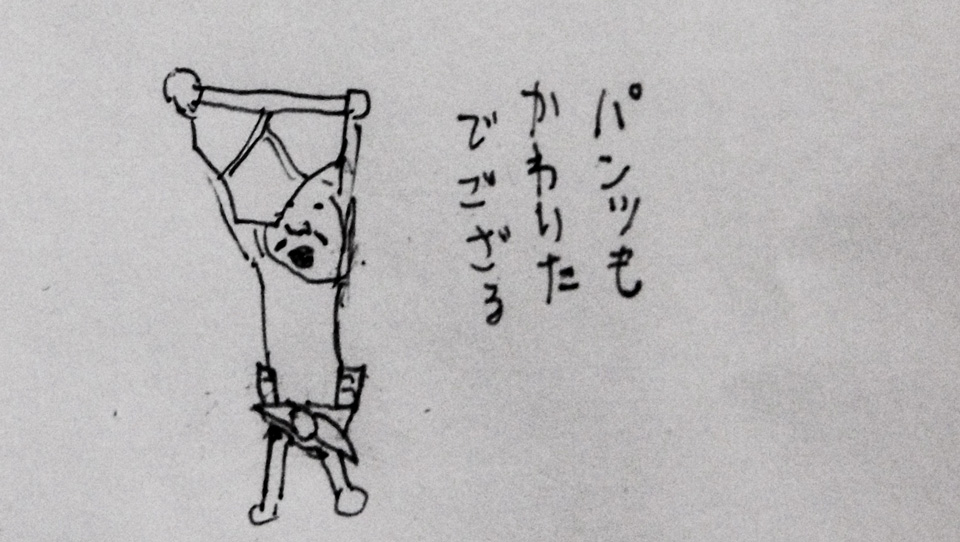 パンツも
かわりた
でござる